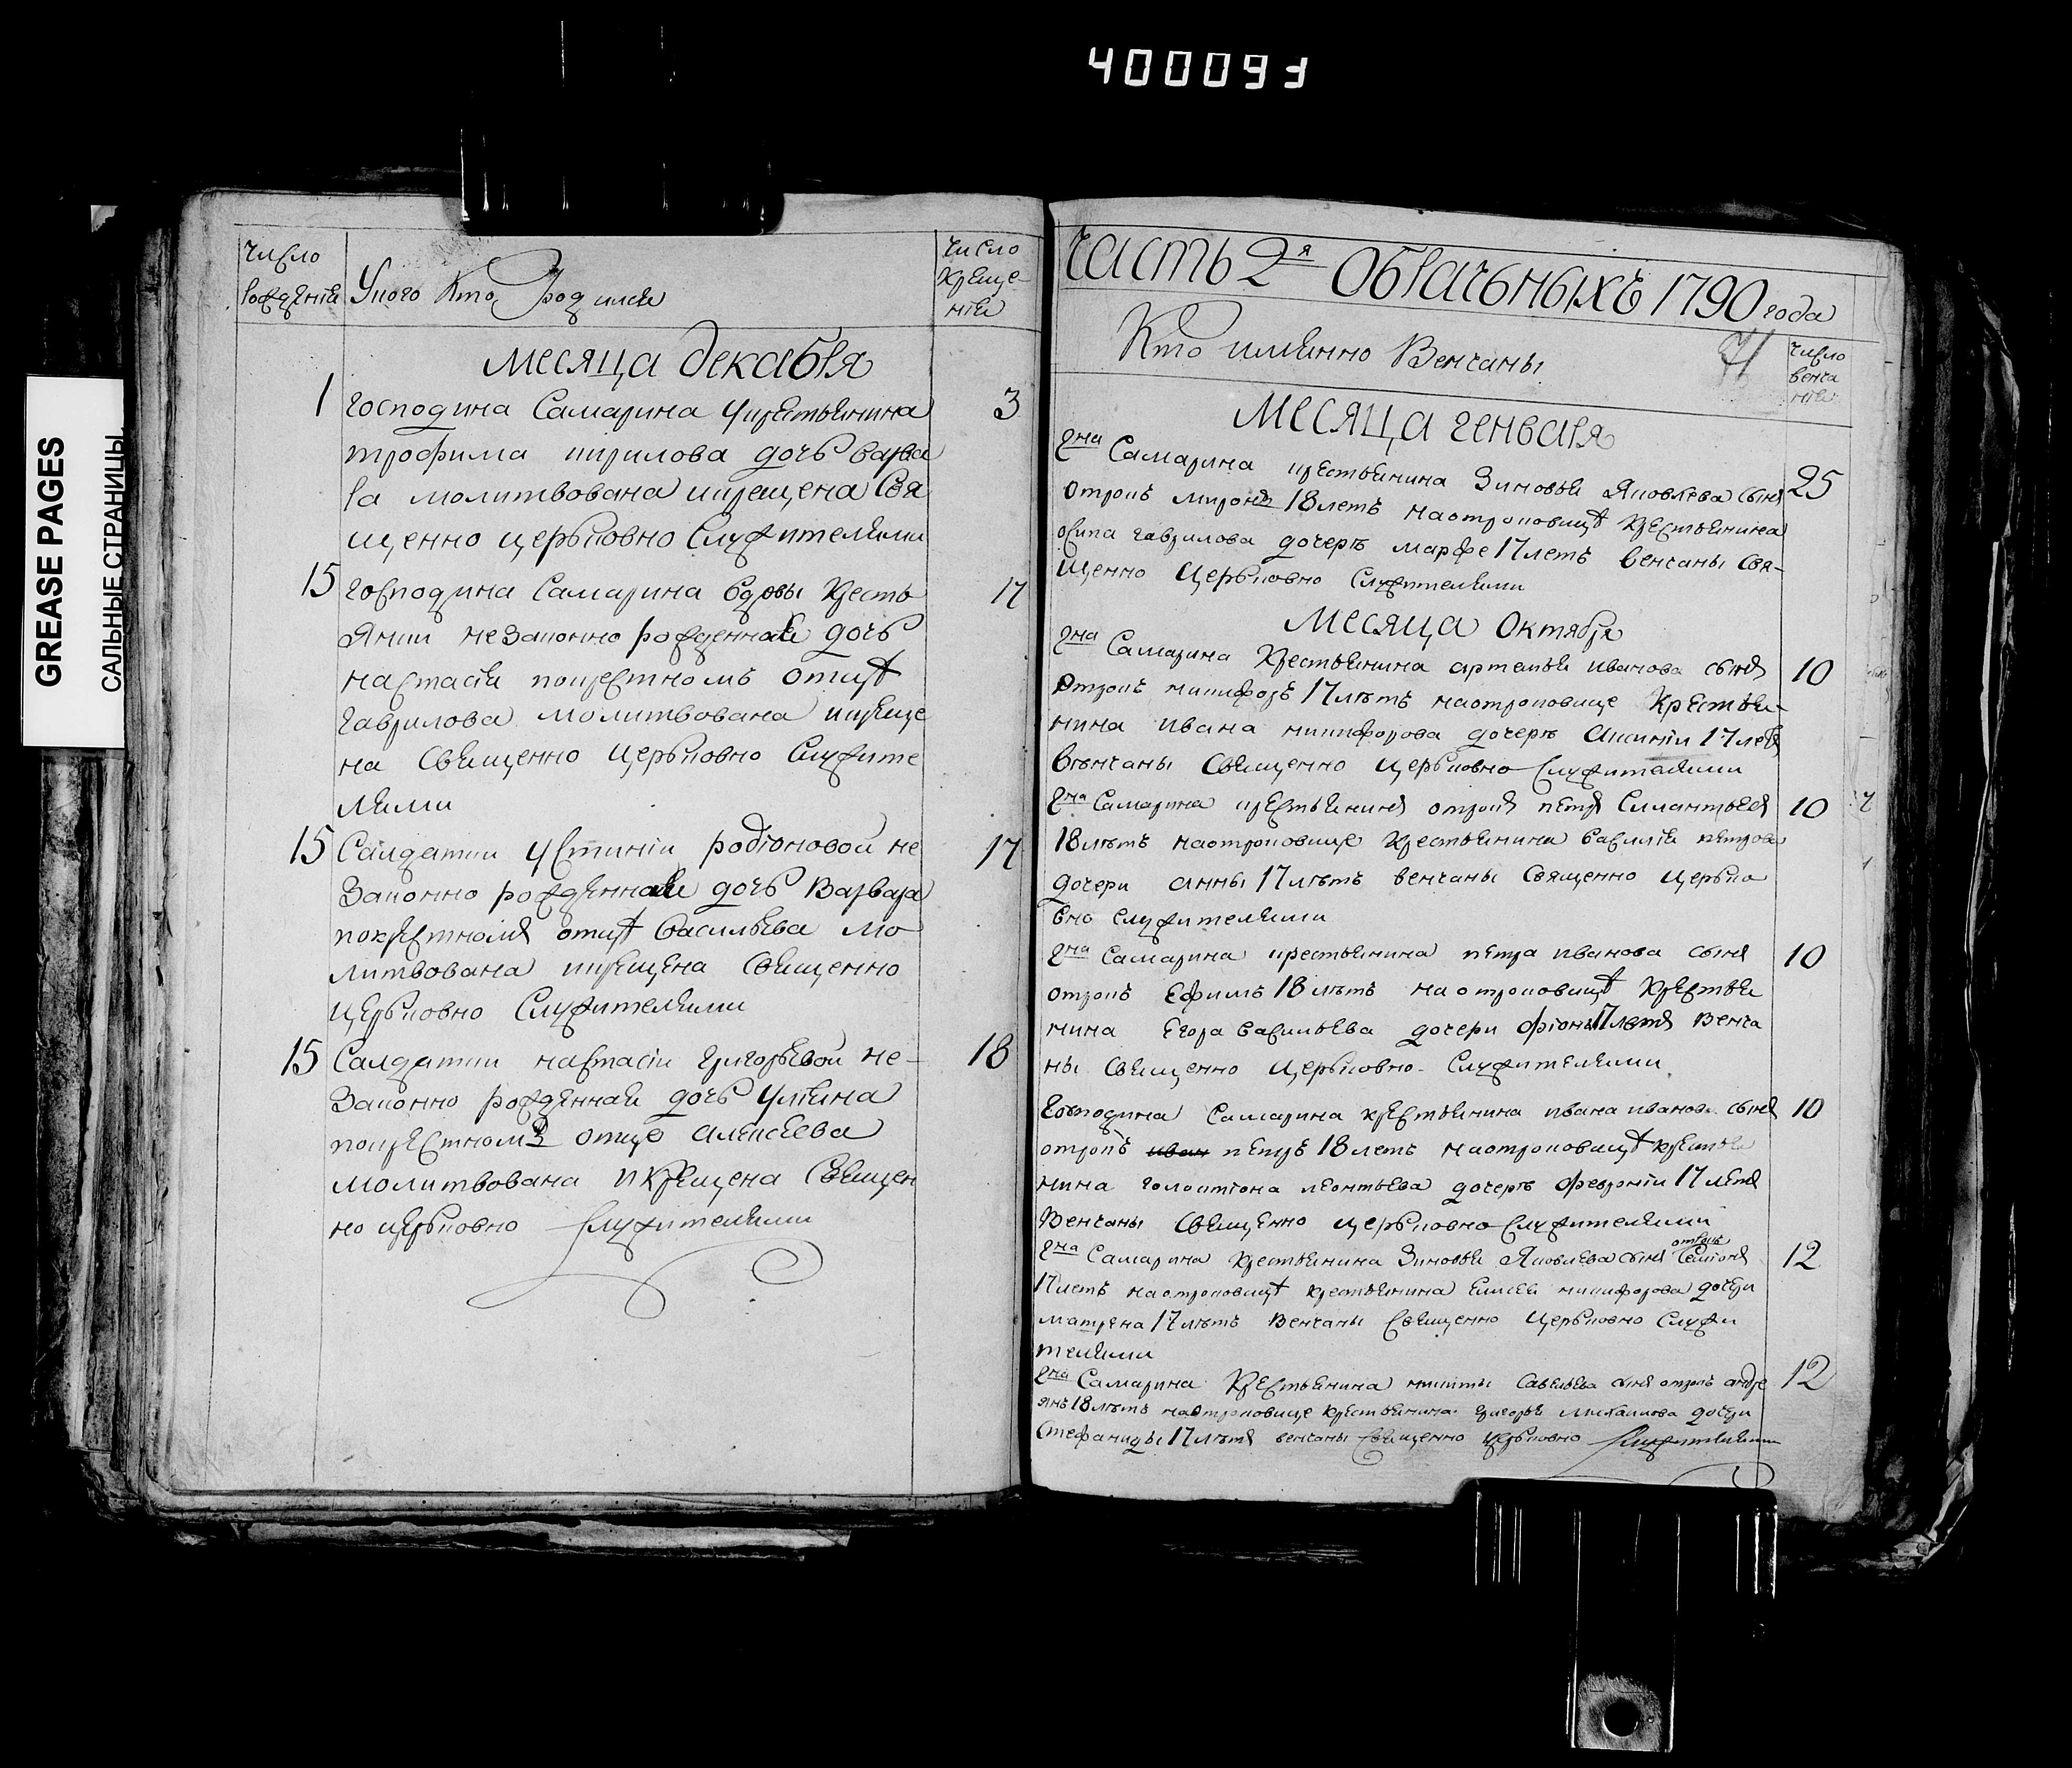 400009
GREASE PAGES
САЛЬНЫЕ СТРАНИЦЫ
число рожденія
Укого кто родился
число крещенія
месяца декабря
1 господина Самарина укрестьянина 3
трофима кирилова дочь варва
ра молитвована икрещена Свя
щенно церьковно Служителями
15 господина Самарина вдовы кресть 17
янки незаконно рожденная дочь
настасія покрестномъ отцѣ
гаврилова молитвована икреще
на Священно церьковно Служите
лями
15 Салдатки устиніи родіоновой не 17
Законно рожденная дочь Варвара
покрестномъ отцѣ васильева мо
литвована икрещена Священно
церьковно Служителями
15 Салдатки настасіи григорьевой не- 18
Законно рожденная дочь ульяна
покрестномъ отце алексеева
молитвована икрещена Священ
но церьковно Служителями
часть 2я Обрачьныхъ 1790 года
Кто имянно Венчаны
число венчанія
месяца генваря
гна Самарина крестьянина Зиновья Яковлева сынъ 25
отрокъ миронъ 18 летъ наотроковицѣ крестьянина
осипа гаврилова дочерѣ марфе 17 летъ венчаны Свя-
щенно церьковно Служителями
Месяца Октября
гна Самарина крестьянина артемья иванова сынъ 10
отрокъ никифоръ 17 лѣтъ наотроковице крестья-
нина ивана никифорова дочерѣ Аксиніи 17 летъ
вѣнчаны Священно церьковно Служителями
гна Самарина крестьянинъ отрокъ петръ Силантьевъ 10
18 лѣтъ наотроковице крестьянина василія петрова
дочери анны 17 лѣтъ венчаны Священно церько
вно служителями
гна Самарина крестьянина петра иванова сынъ 10
отрокъ Ефимъ 18 лѣтъ наотроковицѣ крестья
нина Егора васильева дочери фіоны 17 летъ венча
ны Священно церьковно Служителями
господина Самарина крестьянина ивана иванова сынъ 10
отрокъ иван петръ 18 летъ наотроковицѣ крестья
нина галактіона леонтьева дочерѣ февроніи 17 летъ
Венчаны Священно церьковно Служителями
отрокъ
гна Самарина крестьянина Зиновья Яковлева сынъ Семіонъ 12
17 летъ наотроковицѣ крестьянина Елисея никифорова дочери
матрена 17 лѣтъ Венчаны Священно Церьковно Служи
телями
гна Самарина крестьянина никиты Савельева сынъ отрокъ андре 12
янъ 18 лѣтъ наотроковице крестьянина григорья михаилова дочери
Стефаниды 17 лѣтъ венчаны Священно церьковно Служителями